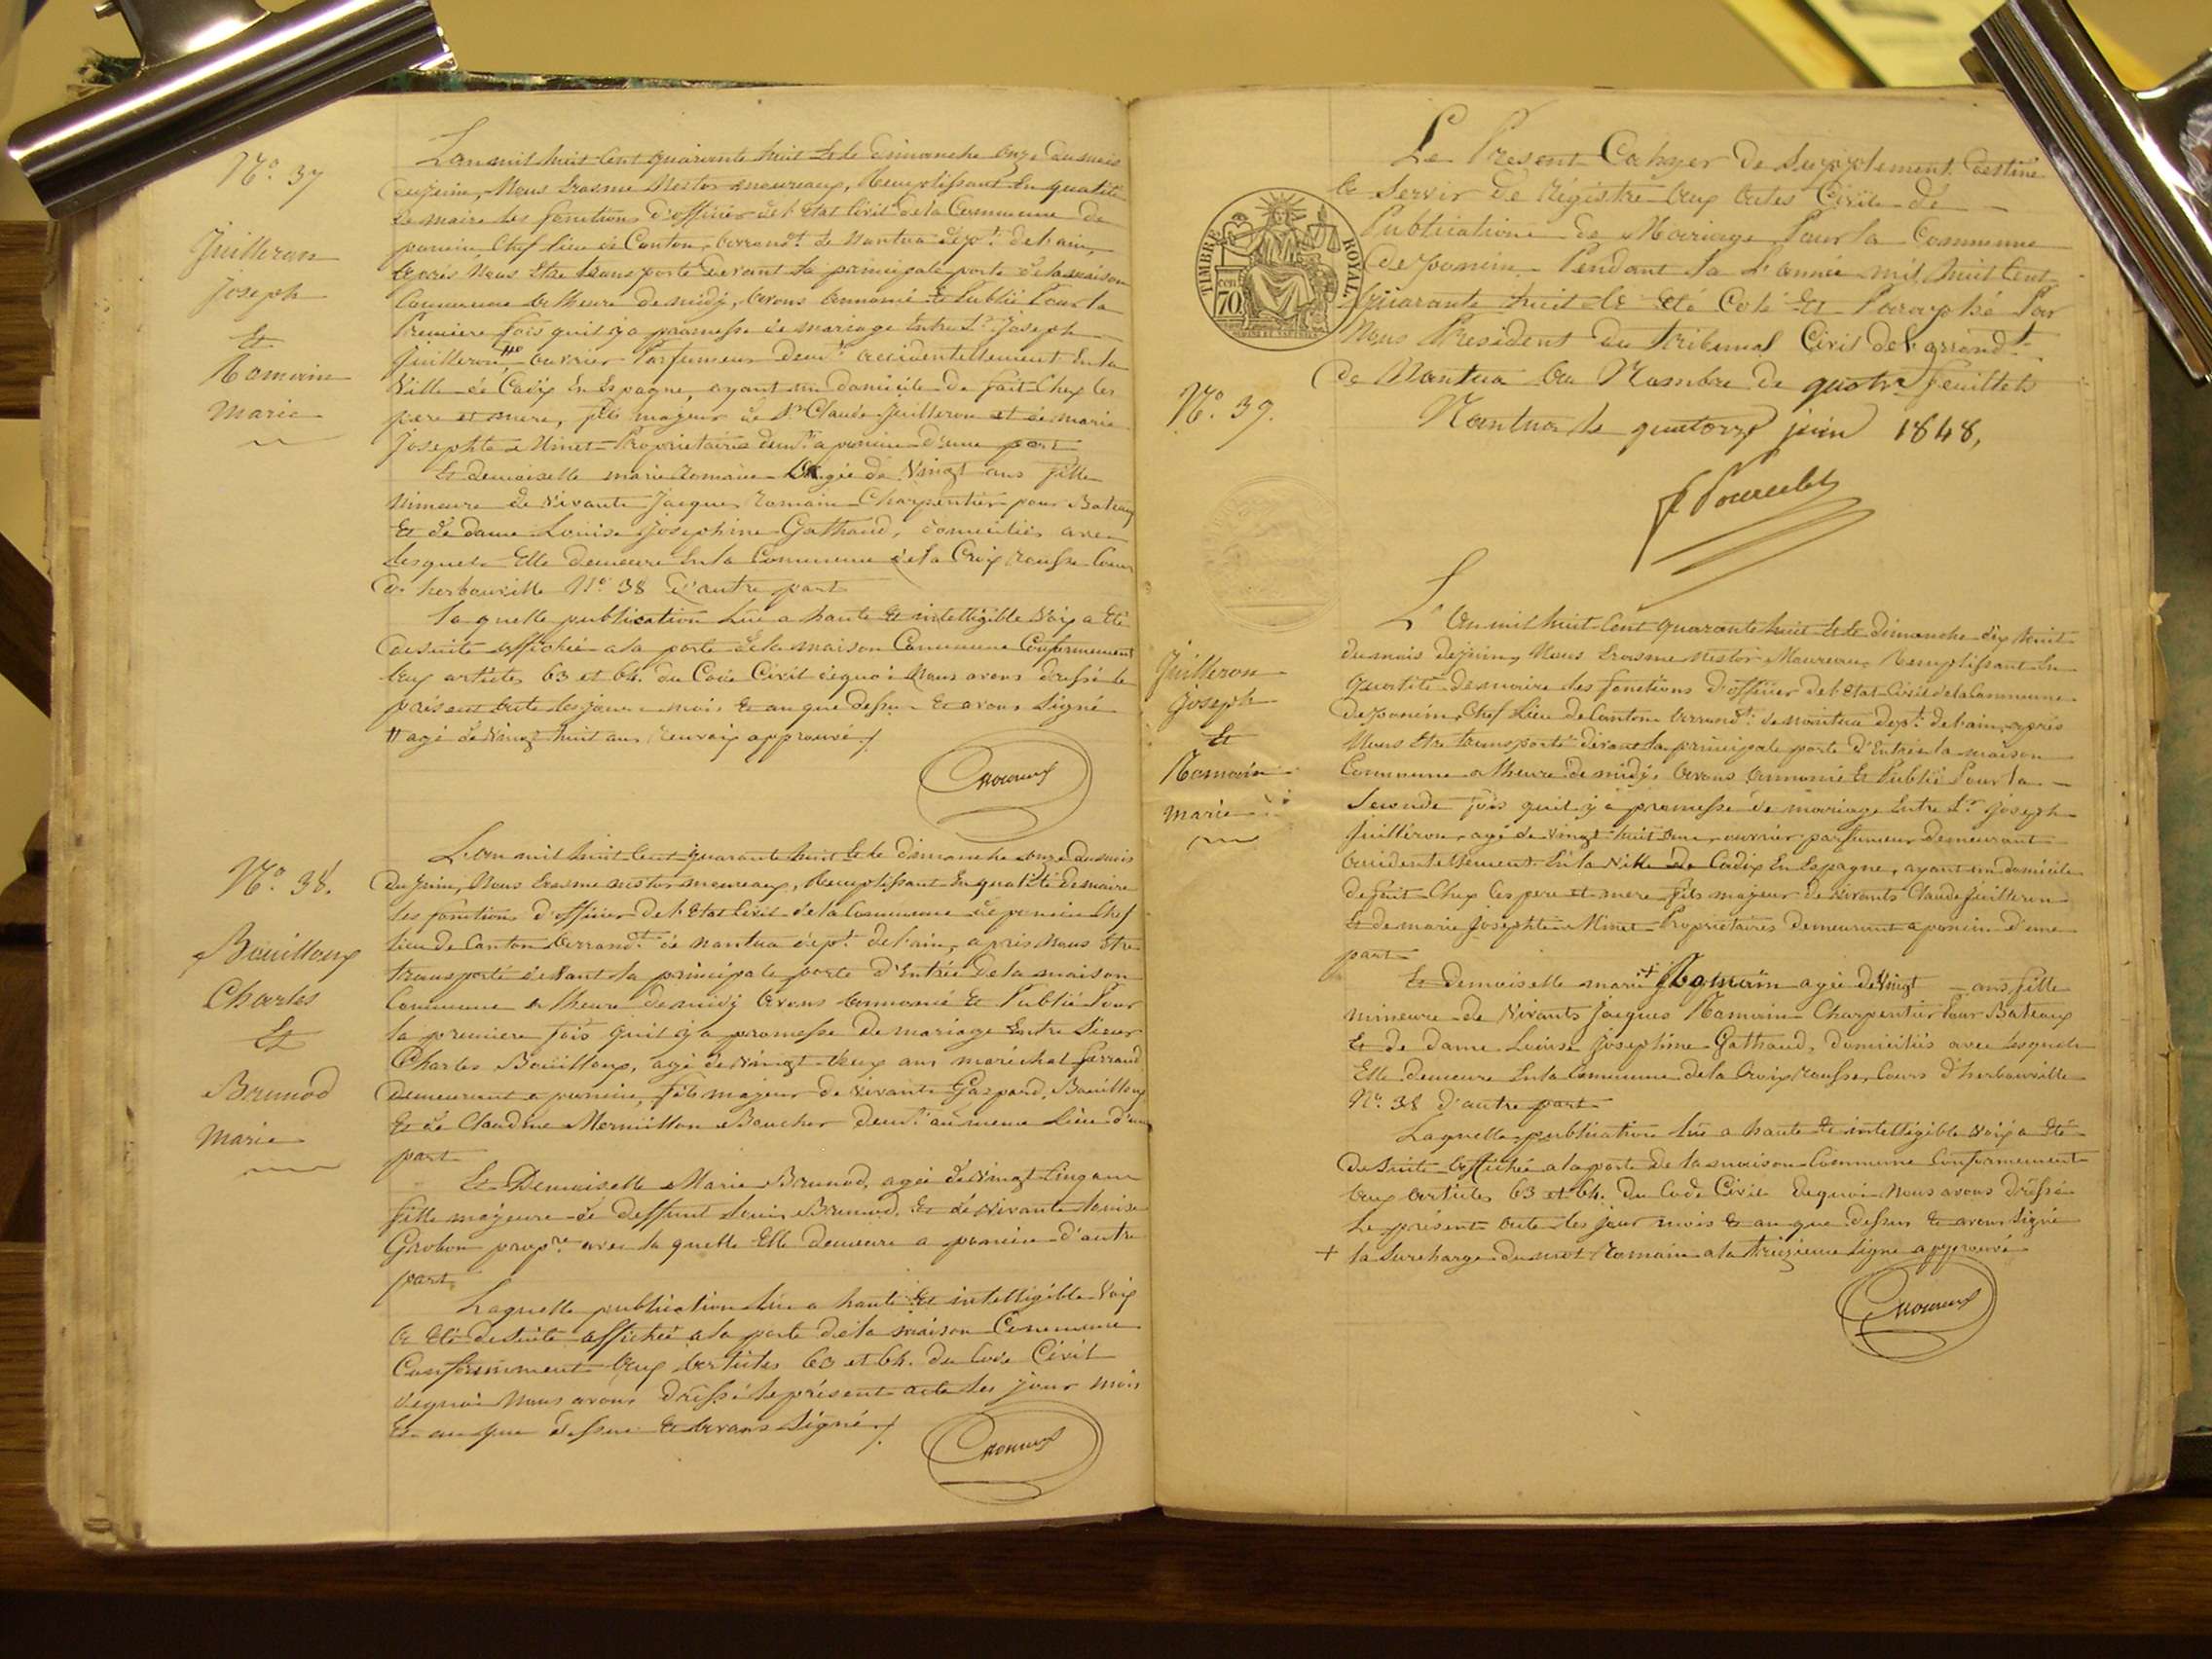 N.º 37
Juilleron
Joseph
Et
Romain
Marie
L'an mil huit Cent quarante huit Et le dimanche onze du mois
de juin, Nous Erasme Nestor moureaux, Remplissant En qualité
de maire les fonctions d'officier de l'Etat Civil de la Commune de
poncin Chef lieu de Canton, Arrond.t de Nantua dép.t de l'ain,
Après Nous Etre transporté devant la principale porte de la maison
Commune a l'heure de midy, Avons Annoncé Et Publié Pour la
Premiere fois qu'il y a promesse de mariage Entre S.r Joseph
Juilleron, ouvrier Parfumeur dem.t accidentellement En la
Ville de Cadix En Espagne, ayant un domicile de fait Chez les
pere et mere, fils majeur de S.r Claude Juilleron et de marie
Josephte Minet Proprietaires dem.t a poncin d'une part
Et demoiselle marie Romain Agée de Vingt ans fille
mineure de Vivants Jacques Romain Charpentier pour Bateaux
Et de dame Louise Josephine Gathaud, domiciliés avec
lesquels Elle demeure En la Commune de la Croix rousse Cours
d'herbouville N.º 38 d'autre part
La quelle publication Lue a haute Et intelligible Voix a Eté
de suite affichée a la porte de la maison Commune Conformement
Aux articles 63 et 64. du Code Civil dequoi Nous avons dressé le
présent acte les jour mois Et an que dessus Et avons Signé
# agé de Vingt huit ans renvoix approuvé
Moureaux
N.º 38.
Bouilloux
Charles
Et
Brunod
Marie
L'an mil huit Cent quarante huit Et le dimanche onze du mois
de juin, Nous Erasme nestor moureaux, Remplissant En qualité de maire
les fonctions d'officier de l'Etat Civil de la Commune de poncin Chef
lieu de Canton Arrond.t de Nantua dép.t de l'ain, après Nous Etre
transporté devant la principale porte d'Entrée de la maison
Commune a l'heure de midy Avons Annoncé Et Publié Pour
la premiere fois qu'il y a promesse de mariage Entre Sieur
Charles Bouilloux, agé de Vingt deux ans maréchal ferrand
demeurant a poncin, fils majeur de Vivants Gaspard Bouilloux
Et de Claudine Mermillon Boucher dem.t au meme Lieu d'une
part
Et Demoiselle Marie Brunod, agée de Vingt Cinq ans
fille majeure de deffunt Louis Brunod, Et de Vivante Louise
Grobon prop.re avec la quelle Elle demeure a poncin d'autre
part
Laquelle publication lue a haute Et intelligible Voix
a Eté de suite affichée a la porte de la maison Commune
Conformement Aux Articles 63 et 64. du Code Civil
dequoi Nous avons dressé le présent acte les jour mois
Et an que dessus Et Avons Signé
Moureaux
Le Present Cahyer de Suplement destiné
a Servir de Régistre Aux Actes Civils de
Publications de Mariage Pour la Commune
de poncin Pendant la L'année mil huit Cent
quarante huit a Eté Coté Et Parayphé Par
Nous President du tribunal Civil de l'arrond.t
de Nantua Au Nombre de quatre feuillets
Nantua le quatorze juin 1848,
TIMBRE ROYAL
70 cen
N.º 39.
Juilleron
Joseph
Et
Romain
Marie
L'An mil huit Cent quarante huit Et le dimanche dix huit
du mois de juin, Nous Erasme Nestor Moureaux Remplissant En
Qualité de maire les fonctions d'officier de l'Etat Civil de la Commune
de poncin, Chef Lieu de Canton Arrond.t de nantua dép.t de l'ain, après
Nous Etre transporté devant la principale porte d'Entrée la maison
Commune a l'heure de midy, Avons Annoncé Et Publié Pour la
Seconde fois qu'il y a promesse de mariage Entre S.r Joseph
Juilleron, agé de Vingt huit ans, ouvrier parfumeur Demeurant
Accidentellement En la Ville de Cadix En Espagne, ayant un domicile
de fait Chez les pere et mere fils majeur de Vivants Claude Juilleron
Et de marie Josephte Minet Proprietaires Demeurant a poncin d'une
part
Et Demoiselle marie + Romain agée de Vingt ans fille
mineure de Vivants Jacques Romain Charpentier Pour Bateaux
Et de Dame Louise Josephine Gathaud, domiciliés avec lesquels
Elle demeure En la Commune de la Croix rousse, Cours d'herbouville
N.º 38 d'autre part
Laquelle publication lue a haute Et intelligible Voix a Eté
de Suite Affichée a la porte de la maison Commune Conformement
Aux Articles 63 et 64. du Code Civil dequoi Nous avons dréssé
Le présent acte les jour mois Et an que dessus Et avons Signé
+ la Surcharge du mot Romain a la treizieme Ligne approuvé
Moureaux